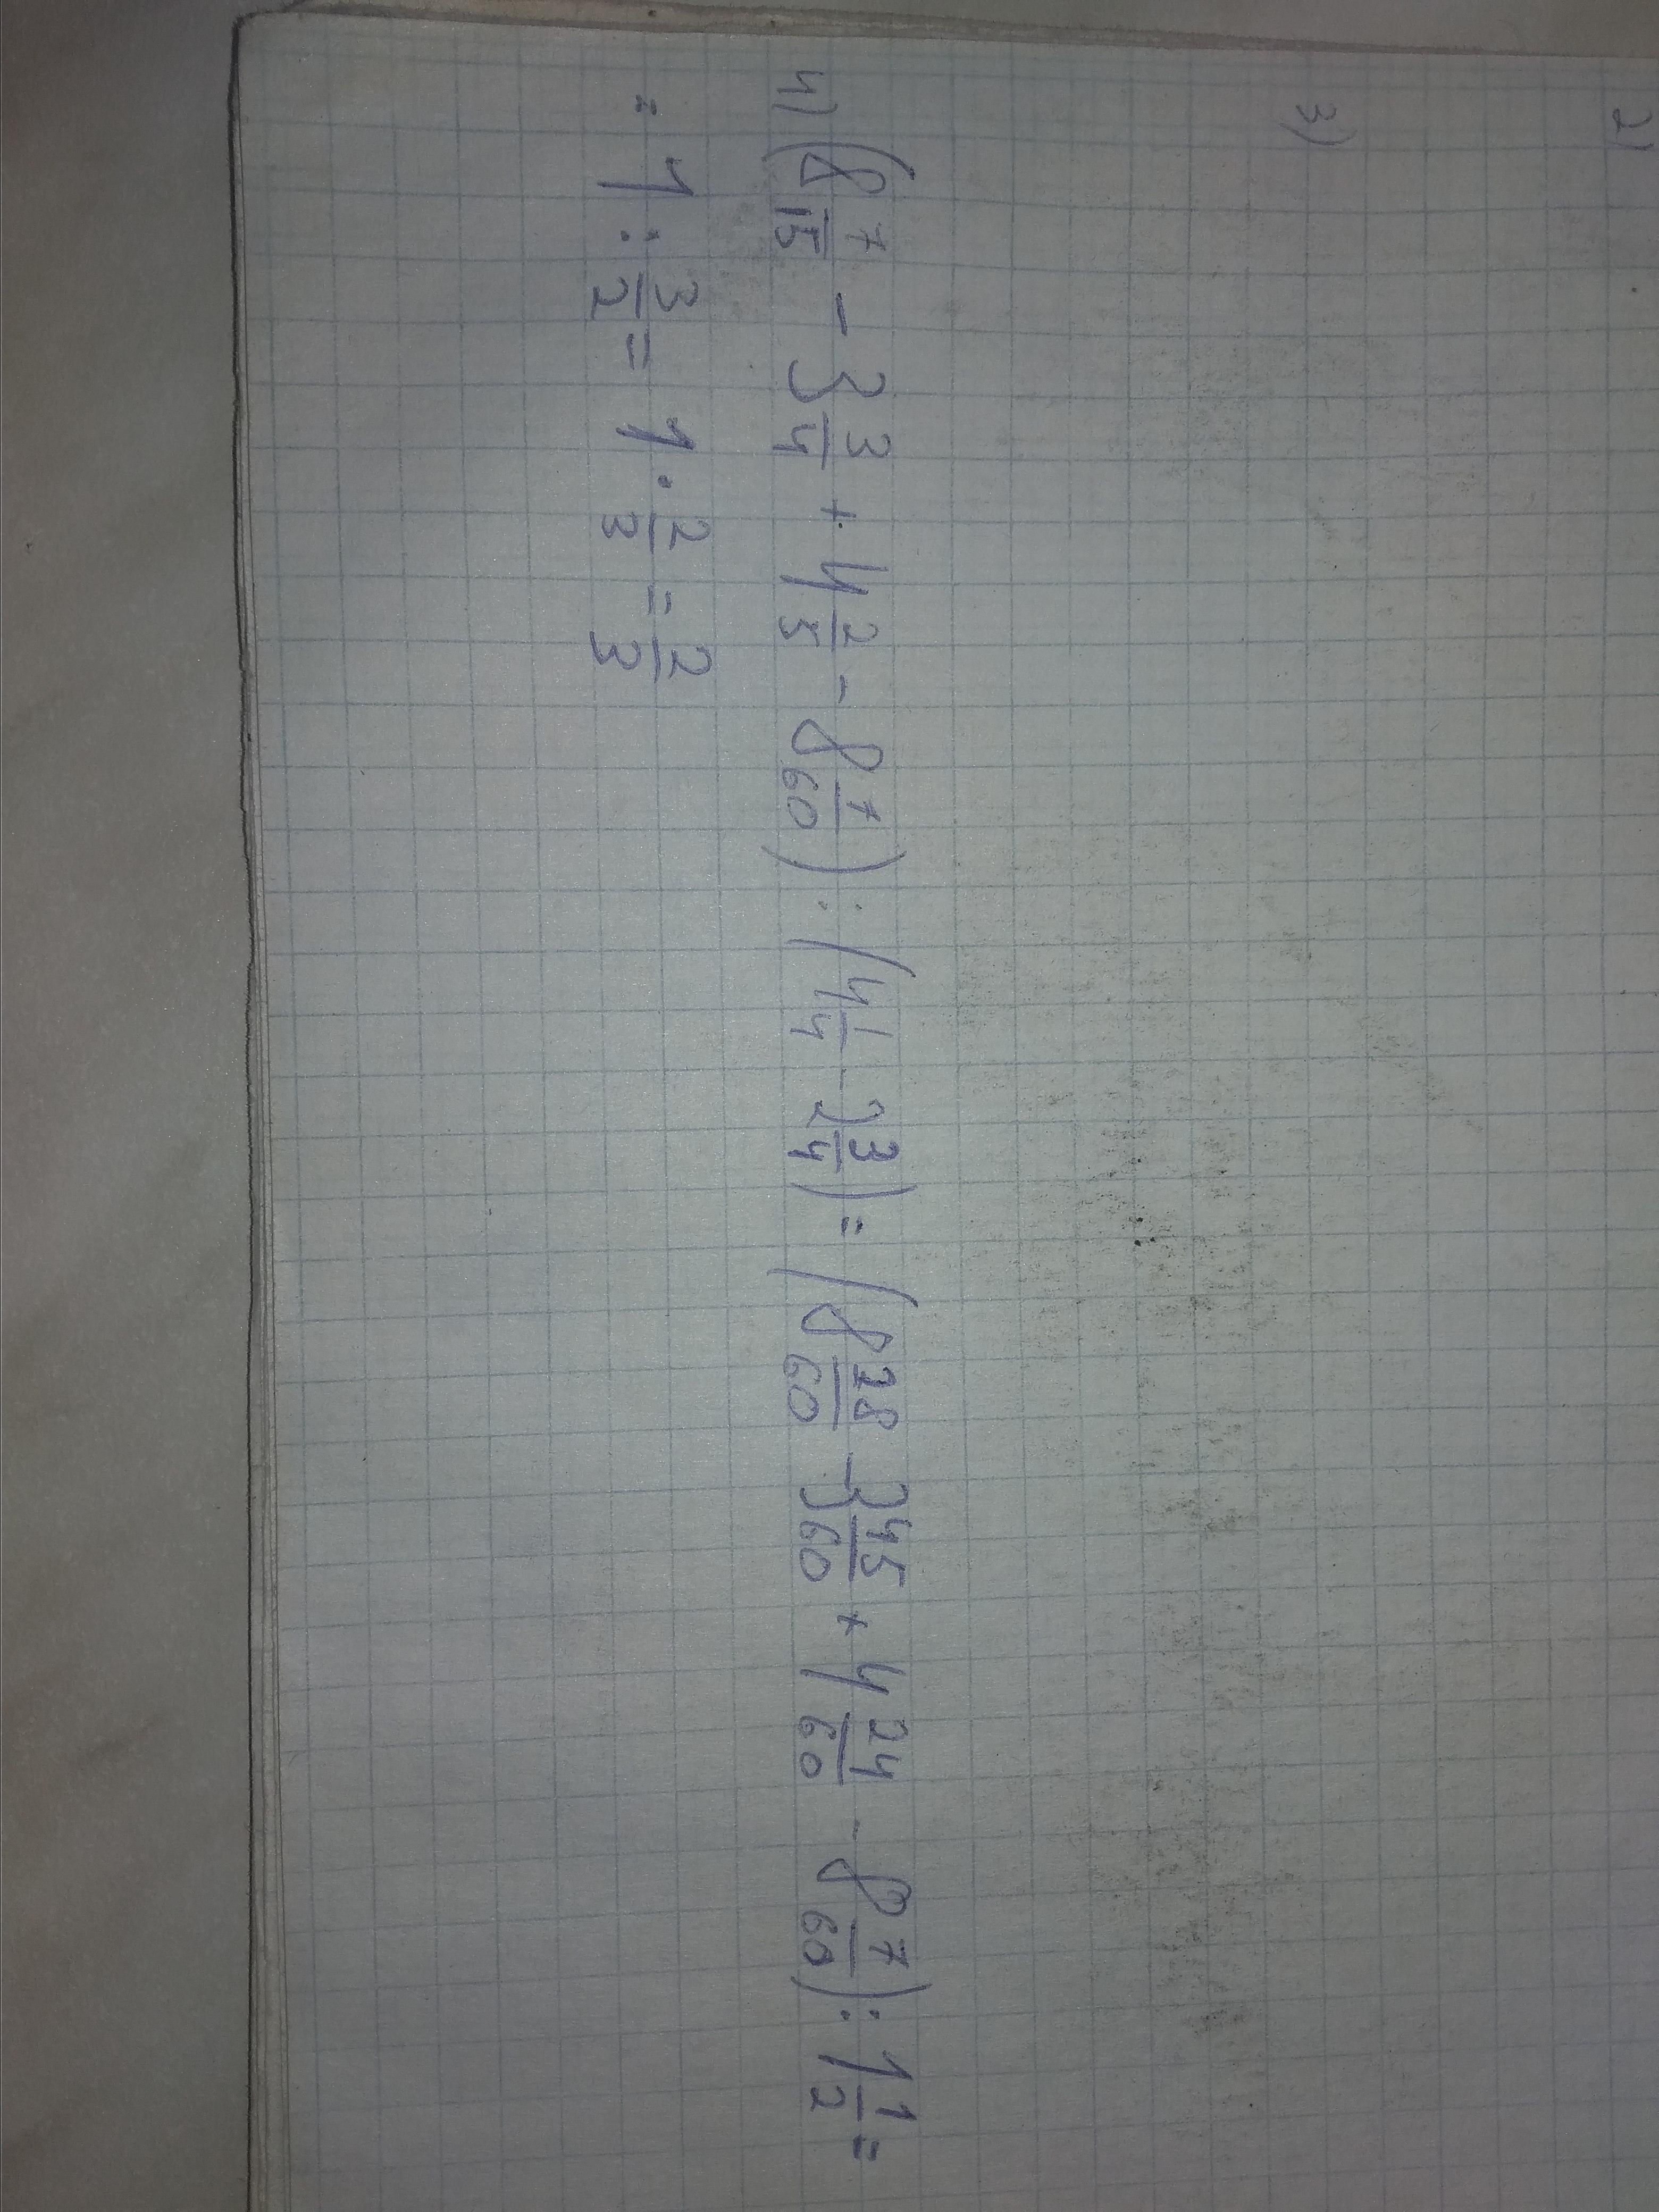 2)
3)
4) (8 7/15 - 3 3/4 + 4 2/5 - 8 7/60) : (4 1/4 - 2 3/4) = (8 28/60 - 3 45/60 + 4 24/60 - 8 7/60) : 1 1/2 =
= 1 : 3/2 = 1 · 2/3 = 2/3